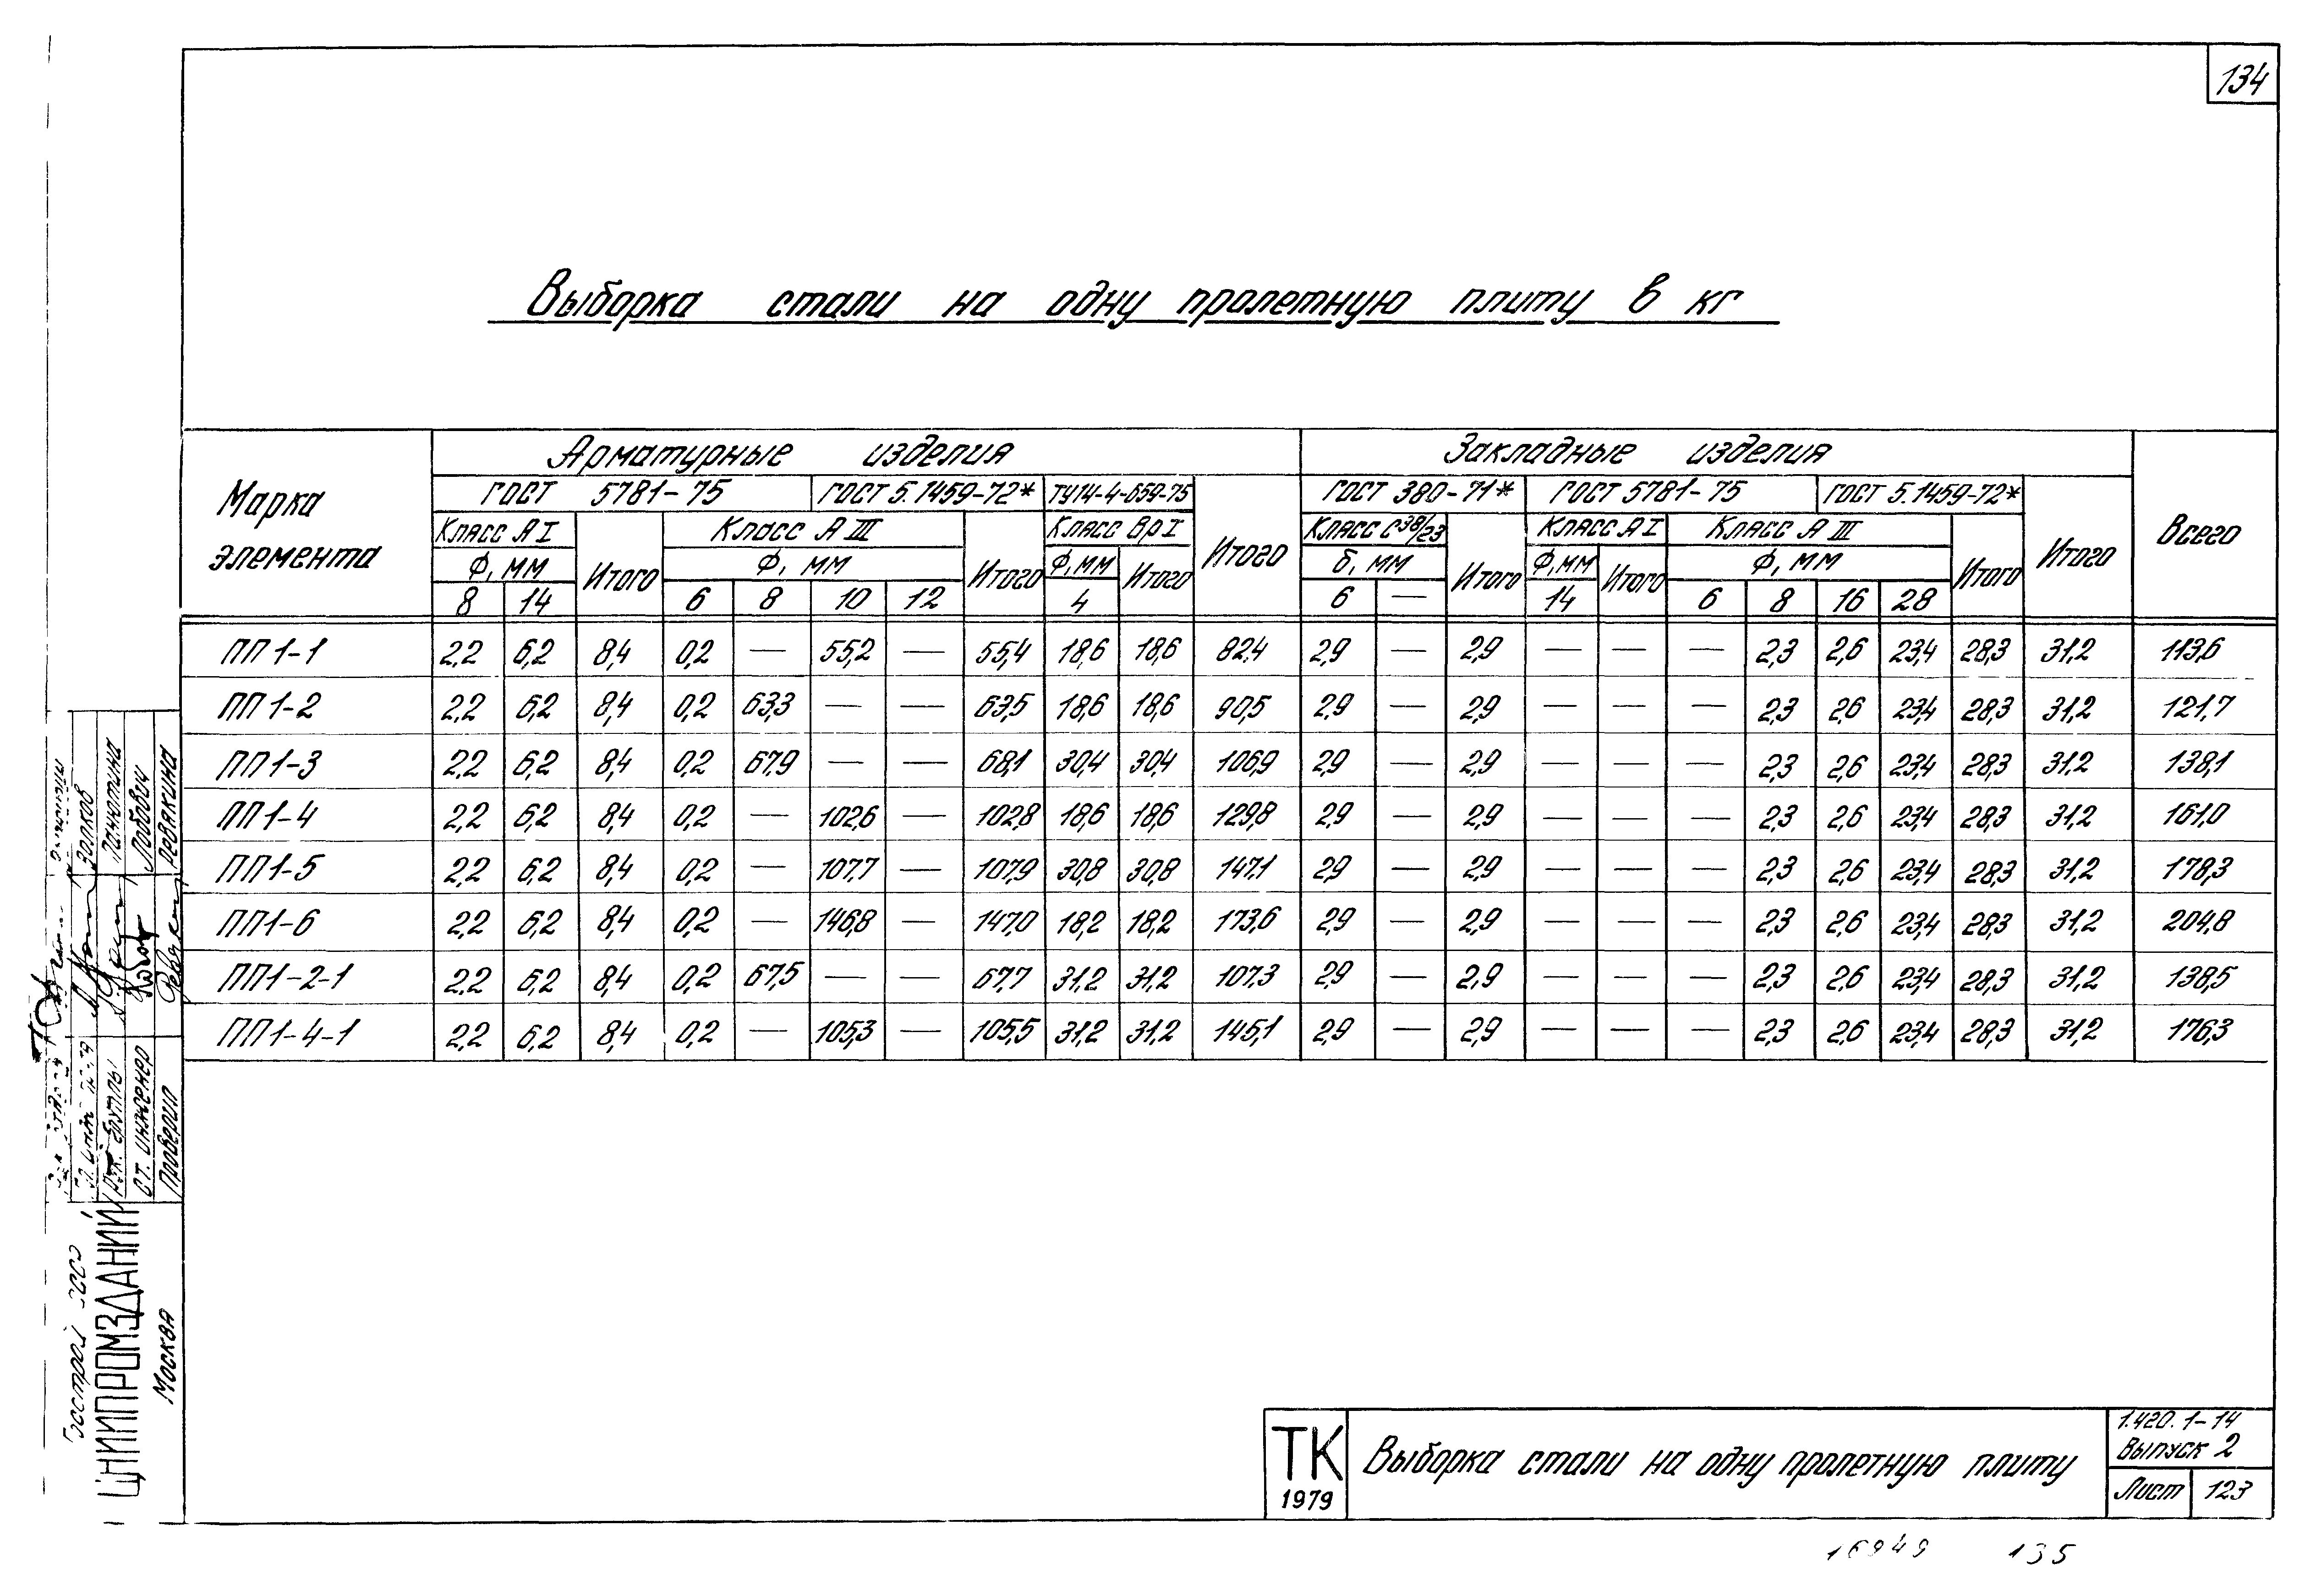 134
Выборка стали на одну пролетную плиту в кг
Марка элемента
Арматурные изделия
Закладные изделия
Всего
ГОСТ 5781-75
ГОСТ 5.1459-72*
ТУ14-4-659-75
Итого
ГОСТ 380-71*
ГОСТ 5781-75
ГОСТ 5.1459-72*
Итого
Класс А I
Итого
Класс А III
Итого
Класс Вр I
Класс С38/23
Итого
Класс А I
Класс А III
Итого
Ф, мм
Ф, мм
Ф, мм
Итого
б, мм
Ф, мм
Итого
Ф, мм
8 14 6 8 10 12 4 6 — 14 6 8 16 28
ПП1-1 2,2 6,2 8,4 0,2 — 55,2 — 55,4 18,6 18,6 82,4 2,9 — 2,9 — — — 2,3 2,6 23,4 28,3 31,2 113,6
ПП1-2 2,2 6,2 8,4 0,2 63,3 — — 63,5 18,6 18,6 90,5 2,9 — 2,9 — — — 2,3 2,6 23,4 28,3 31,2 121,7
ПП1-3 2,2 6,2 8,4 0,2 67,9 — — 68,1 30,4 30,4 106,9 2,9 — 2,9 — — — 2,3 2,6 23,4 28,3 31,2 138,1
ПП1-4 2,2 6,2 8,4 0,2 — 102,6 — 102,8 18,6 18,6 129,8 2,9 — 2,9 — — — 2,3 2,6 23,4 28,3 31,2 161,0
ПП1-5 2,2 6,2 8,4 0,2 — 107,7 — 107,9 30,8 30,8 147,1 2,9 — 2,9 — — — 2,3 2,6 23,4 28,3 31,2 178,3
ПП1-6 2,2 6,2 8,4 0,2 — 146,8 — 147,0 18,2 18,2 173,6 2,9 — 2,9 — — — 2,3 2,6 23,4 28,3 31,2 204,8
ПП1-2-1 2,2 6,2 8,4 0,2 67,5 — — 67,7 31,2 31,2 107,3 2,9 — 2,9 — — — 2,3 2,6 23,4 28,3 31,2 138,5
ПП1-4-1 2,2 6,2 8,4 0,2 — 105,3 — 105,5 31,2 31,2 145,1 2,9 — 2,9 — — — 2,3 2,6 23,4 28,3 31,2 176,3
Рук. группы
Ст. инженер Лобович
Проверил Ревякина
Госстрой
ЦНИИПРОМЗДАНИЙ
Москва
ТК
1979
Выборка стали на одну пролетную плиту
1.420.1-14
Выпуск 2
Лист 123
16949 135